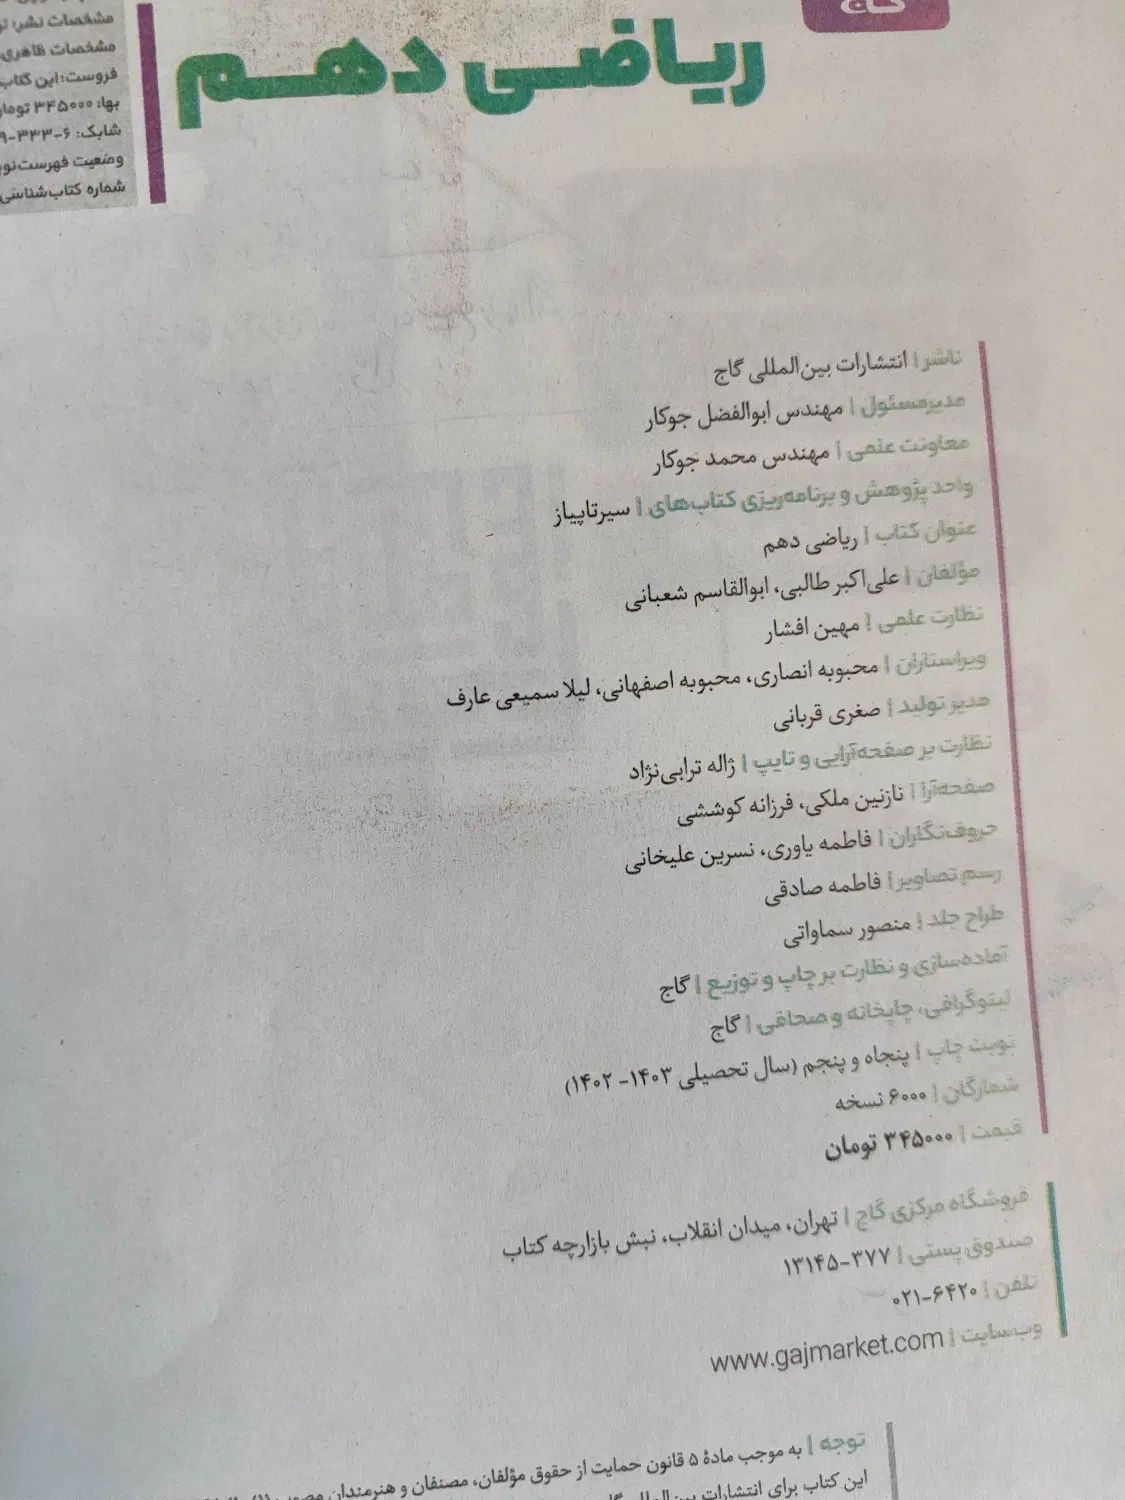 گاج
ریاضی دهم
مشخصات نشر:
مشخصات ظاهری
فروست: این کتاب
بها: ۳۴۵۰۰۰ تومان
شابک: ۶-۳۳۳-۹
وضعیت فهرست‌نوی
شماره کتاب‌شناسی
ناشر | انتشارات بین‌المللی گاج
مدیرمسئول | مهندس ابوالفضل جوکار
معاونت علمی | مهندس محمد جوکار
واحد پژوهش و برنامه‌ریزی کتاب‌های | سیرتاپیاز
عنوان کتاب | ریاضی دهم
مؤلفان | علی‌اکبر طالبی، ابوالقاسم شعبانی
نظارت علمی | مهین افشار
ویراستاران | محبوبه انصاری، محبوبه اصفهانی، لیلا سمیعی عارف
مدیر تولید | صغری قربانی
نظارت بر صفحه‌آرایی و تایپ | ژاله ترابی‌نژاد
صفحه‌آرا | نازنین ملکی، فرزانه کوششی
حروف‌نگاران | فاطمه یاوری، نسرین علیخانی
رسم تصاویر | فاطمه صادقی
طراح جلد | منصور سماواتی
آماده‌سازی و نظارت بر چاپ و توزیع | گاج
لیتوگرافی، چاپخانه و صحافی | گاج
نوبت چاپ | پنجاه و پنجم (سال تحصیلی ۱۴۰۳- ۱۴۰۲)
شمارگان | ۶۰۰۰ نسخه
قیمت | ۳۴۵۰۰۰ تومان
فروشگاه مرکزی گاج | تهران، میدان انقلاب، نبش بازارچه کتاب
صندوق پستی | ۳۷۷-۱۳۱۴۵
تلفن | ۶۴۲۰-۰۲۱
وب‌سایت | www.gajmarket.com
توجه | به موجب مادهٔ ۵ قانون حمایت از حقوق مؤلفان، مصنفان و هنرمندان
این کتاب برای انتشارات بین‌المللی